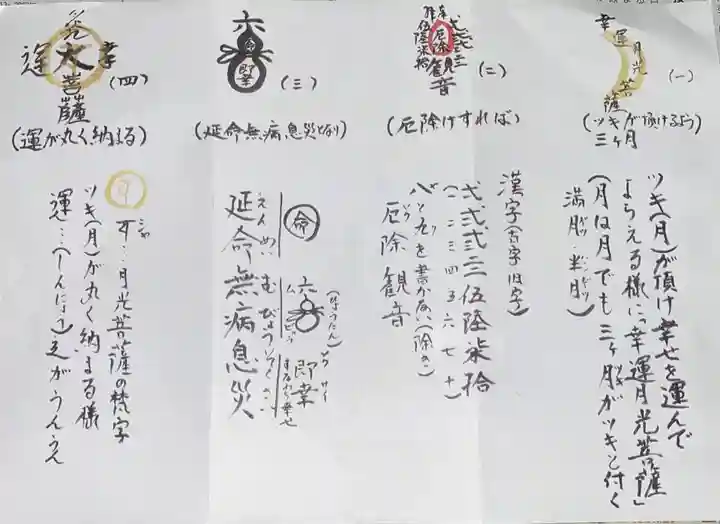 幸運月光菩薩
(一)
(ツキが頂けるよう)
三ヶ月
ツキ(月)が頂け幸せを運んで
もらえる様に「幸運月光菩薩」
(月は月でも三ヶ月がツキと付く
満月・半月)
弐参
伍陸柒拾
厄除観音
(二)
(厄除けすれば)
漢字(古字旧字)
弌弐弎二伍陸柒拾
(一二三四五六七十)
八と九を書かない(除のこ)
厄除観音
六
命
即幸
(三)
(延命無病息災となり)
命
六
(ひょうたん)
即幸
すなわち幸せ
えんめい むびょうそくさい
延命無病息災
幸
運
大
菩薩
(四)
(運が丸く納まる)
月光菩薩の梵字
ツキ(月)が丸く納まる様
運…(しんにょう)